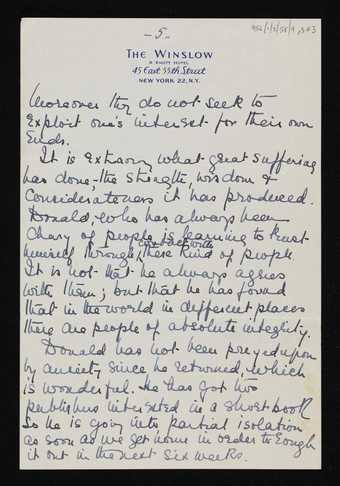 - 5 -
THE WINSLOW
A KNOTT HOTEL
45 East 55th Street
NEW YORK 22, N.Y.
Moreover they do not seek to
exploit one's interest for their own
Ends.
It is extraory what great suffering
has done, - the strength, wisdom &
Considerateness it has produced.
Donald, who has always been
Chary of people is learning to trust
himself through contact with these kind of people
It is not that he always agrees
with them; but that he has found
that in the world in different places
there are people of absolute integrity.
Donald has not been preyed upon
by anxiety since he returned, which
is wonderful. He has got two
publishers interested in a short book
So he is going into partial isolation
as soon as we get home in order to rough
it out in the next six weeks.